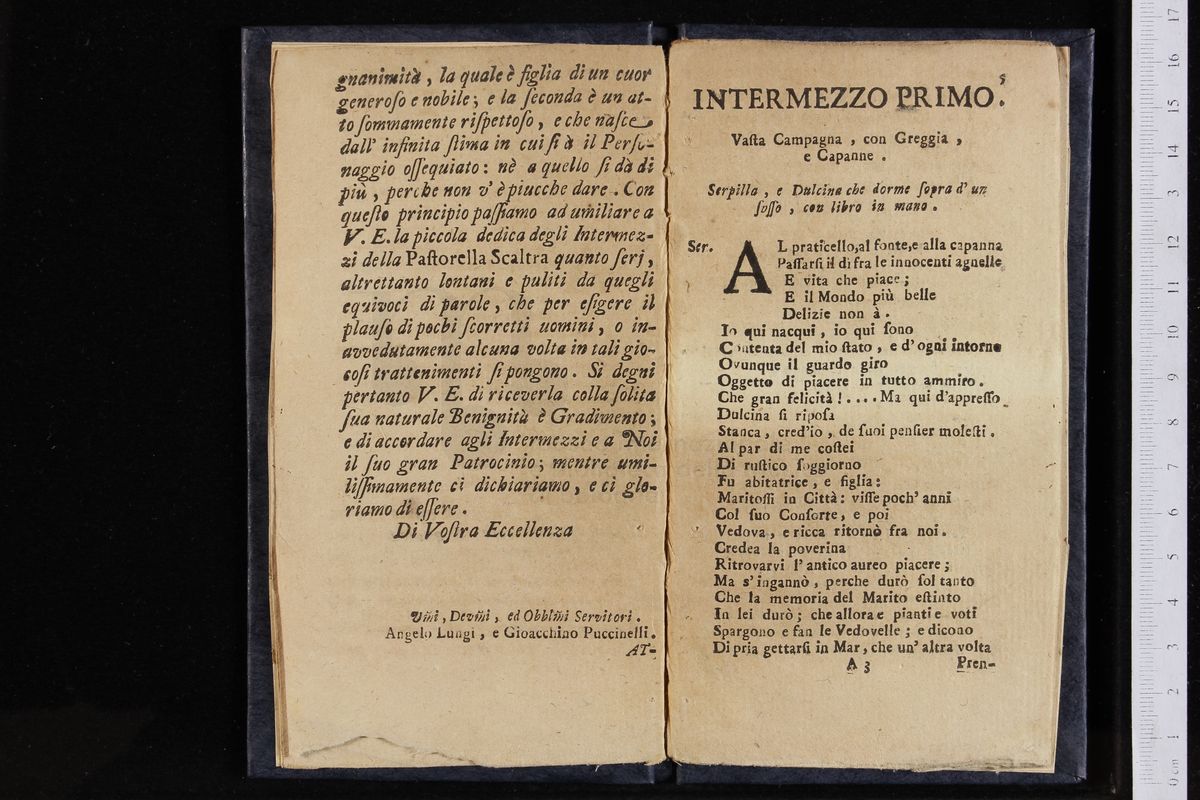 gnanimità, la quale è figlia di un cuor
generoſo e nobile; e la ſeconda è un at-
to ſommamente riſpettoſo, e che naſce
dall' infinita ſtima in cui ſi à il Perſo-
naggio oſſequiato: nè a quello ſi dà di
più, perche non v' è piucche dare. Con
queſto principio paſſiamo ad umiliare a
V. E. la piccola dedica degli Intermez-
zi della Paſtorella Scaltra quanto ſerj,
altrettanto lontani e puliti da quegli
equivoci di parole, che per eſigere il
plauſo di pochi ſcorretti uomini, o in-
avvedutamente alcuna volta in tali gio-
coſi trattenimenti ſi pongono. Si degni
pertanto V. E. di riceverla colla ſolita
ſua naturale Benignità è Gradimento;
e di accordare agli Intermezzi e a Noi
il ſuo gran Patrocinio; mentre umi-
liſſimamente ci dichiariamo, e ci glo-
riamo di eſſere.
Di Voſtra Eccellenza
Umi, Devmi, ed Obblmi Servitori.
Angelo Lungi, e Gioacchino Puccinelli.
AT-
5
INTERMEZZO PRIMO.
Vaſta Campagna, con Greggia,
e Capanne.
Serpilla, e Dulcina che dorme ſopra d' un
ſaſſo, con libro in mano.
Ser. AL praticello, al fonte, e alla capanna
Paſſarſi il dì fra le innocenti agnelle
E vita che piace;
E il Mondo più belle
Delizie non à.
Io qui nacqui, io qui ſono
Contenta del mio ſtato, e d' ogni intorno
Ovunque il guardo giro
Oggetto di piacere in tutto ammiro.
Che gran felicità!.... Ma qui d'appreſſo
Dulcina ſi ripoſa
Stanca, cred'io, de ſuoi penſier moleſti.
Al par di me coſtei
Di ruſtico ſoggiorno
Fu abitatrice, e figlia:
Maritoſſi in Città: viſſe poch' anni
Col ſuo Conſorte, e poi
Vedova, e ricca ritornò fra noi.
Credea la poverina
Ritrovarvi l' antico aureo piacere;
Ma s' ingannò, perche durò ſol tanto
Che la memoria del Marito eſtinto
In lei durò; che allora e pianti e voti
Spargono e fan le Vedovelle; e dicono
Di pria gettarſi in Mar, che un' altra volta
A 3 Pren-
0 cm 1 2 3 4 5 6 7 8 9 10 11 12 13 14 15 16 17